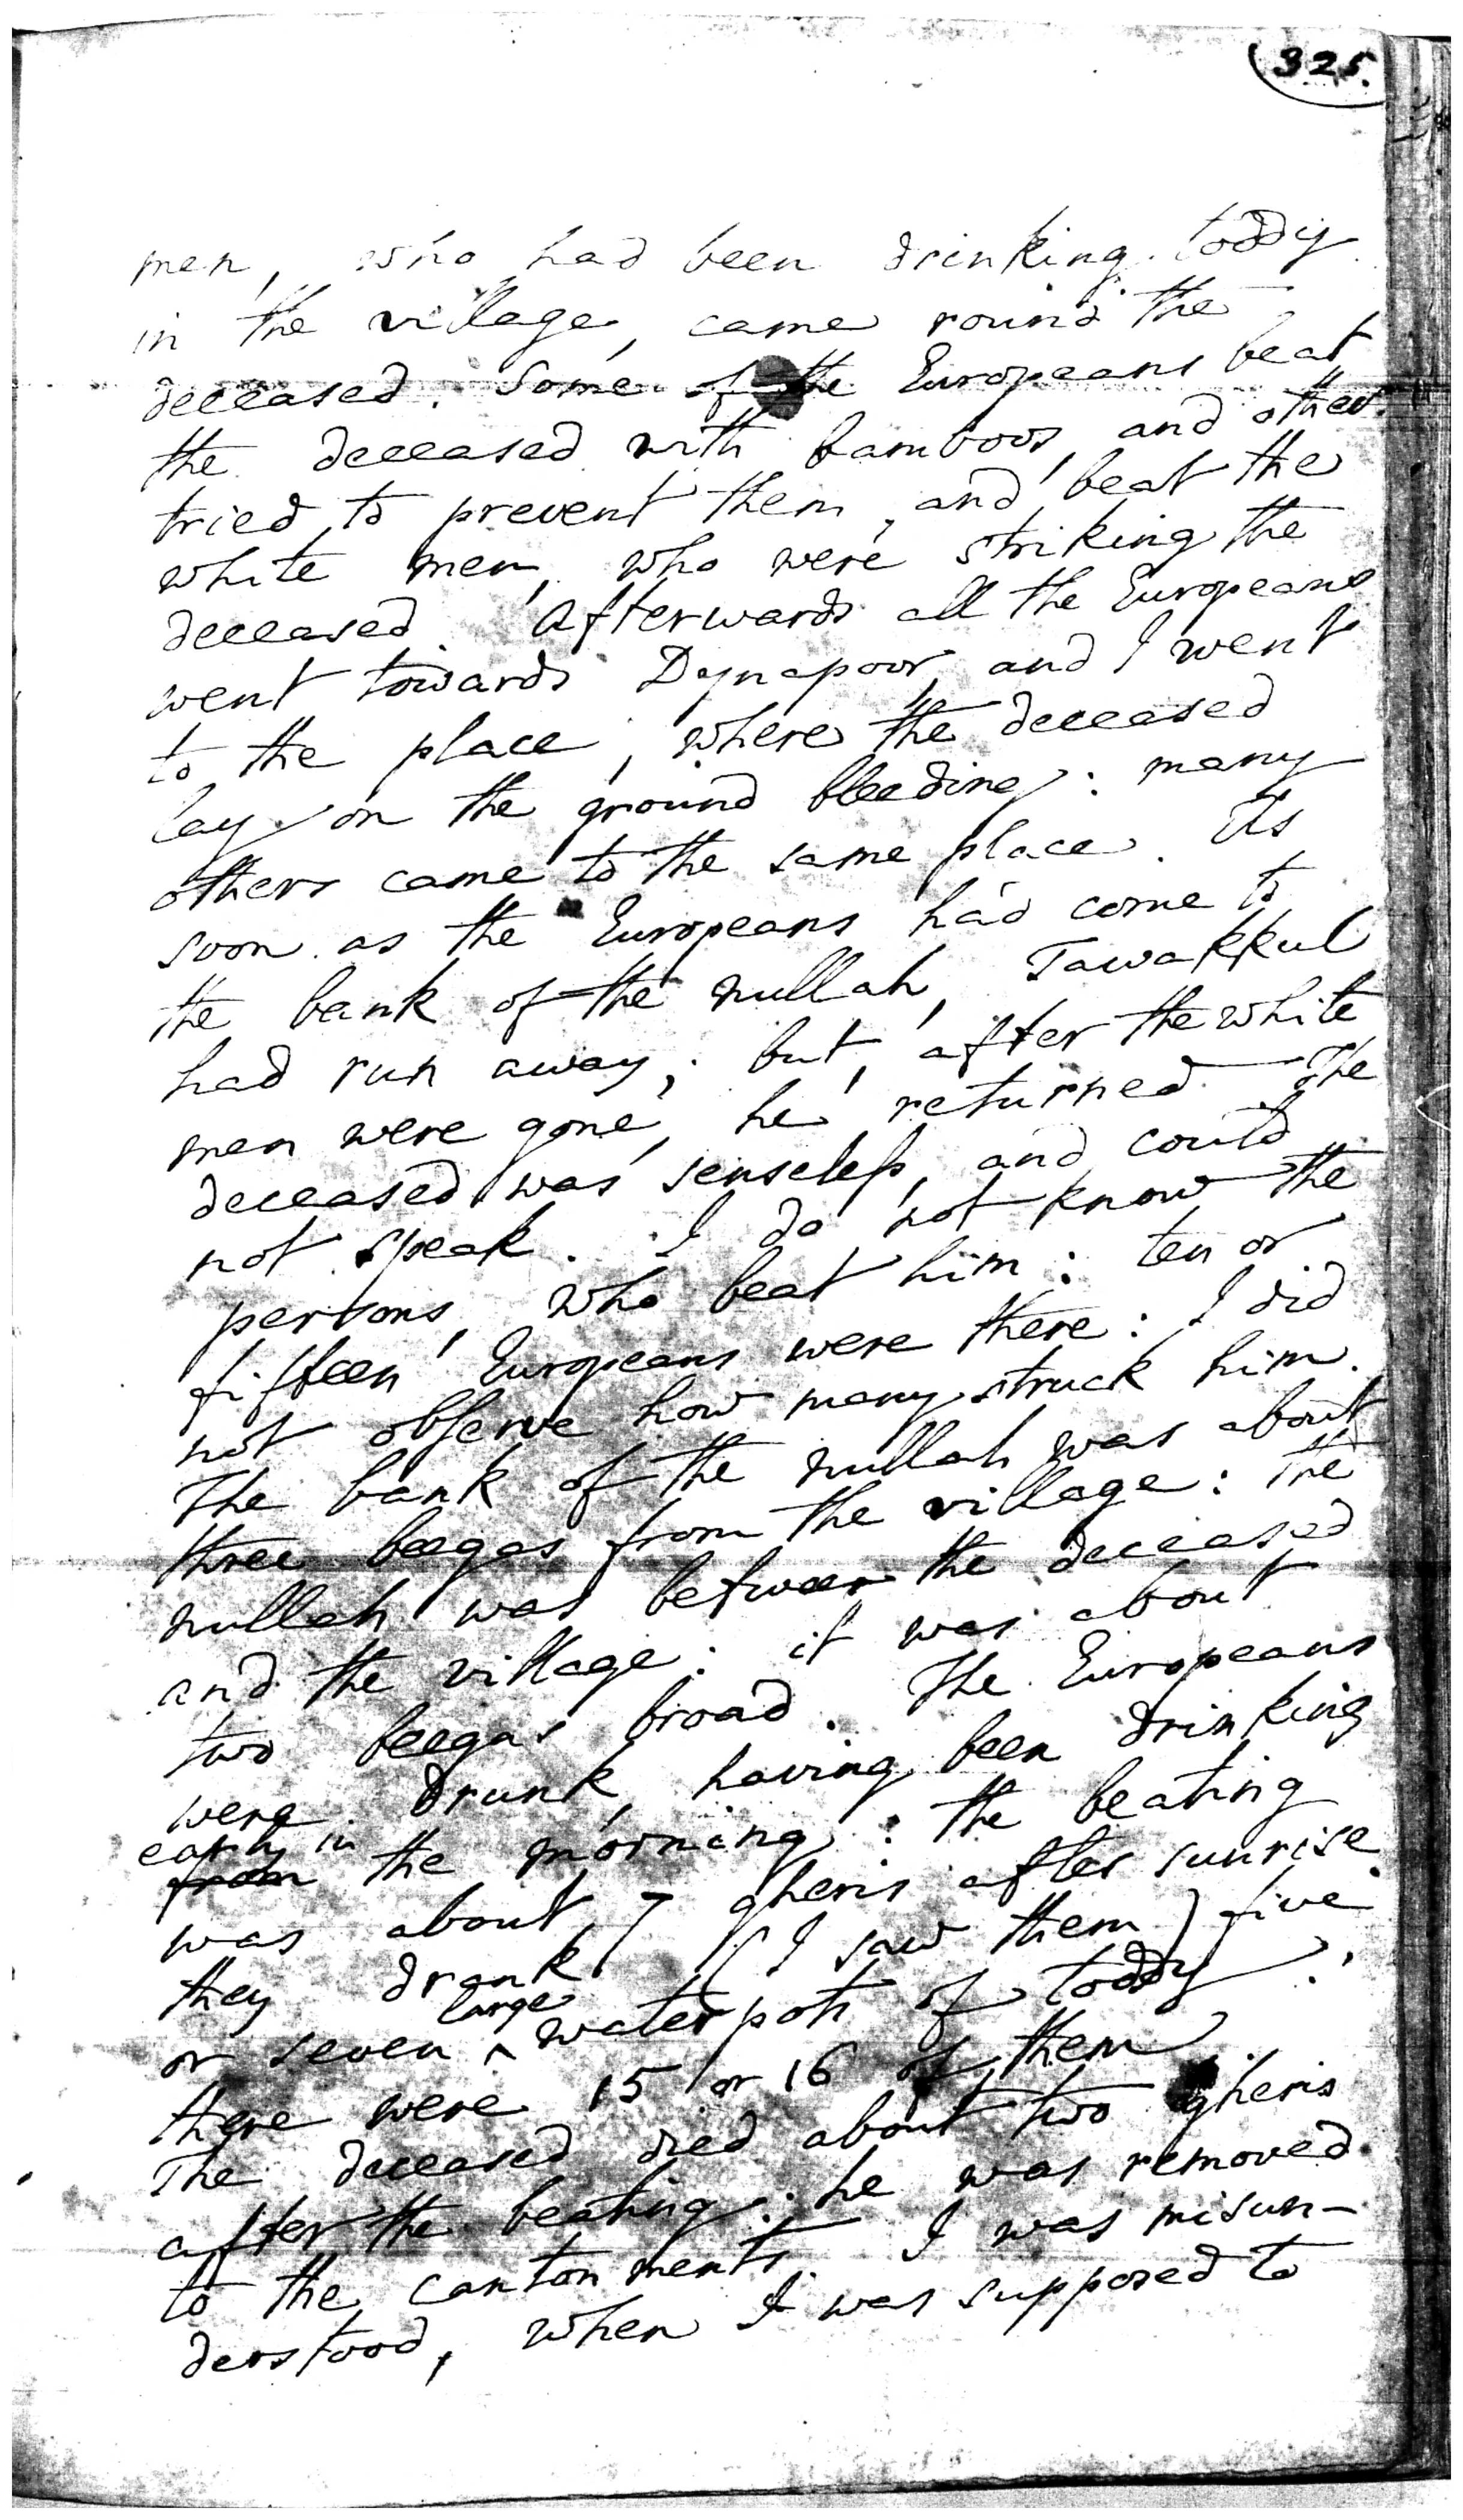 325.
men, who had been drinking toddy
in the village, came round the
deceased. Some of the Europeans beat
the deceased with bamboos, and others
tried to prevent them, and beat the
white men, who were striking the
deceased. Afterwards all the Europeans
went towards Dynapoor, and I went
to the place, where the deceased
lay on the ground bleeding: many
others came to the same place. As
soon as the Europeans had come to
the bank of the nullah, Tawakkul
had run away; but, after the white
men were gone, he returned. The
deceased was senseless, and could
not speak. I do not know the
persons, who beat him: ten or
fifteen Europeans were there: I did
not observe how many struck him.
The bank of the nullah was about
three beegas from the village: the
nullah was between the deceased
and the village: it was about
two beegas broad. The Europeans
were drunk, having been drinking
early in
from the morning: the beating
was about 7 gheris after sunrise.
they drank (I saw them) five
or seven ^ large waterpots of toddy:
there were 15 or 16 of them
The deceased died about two gheris
after the beating: he was removed
to the cantonments. I was misun-
derstood, when I was supposed to